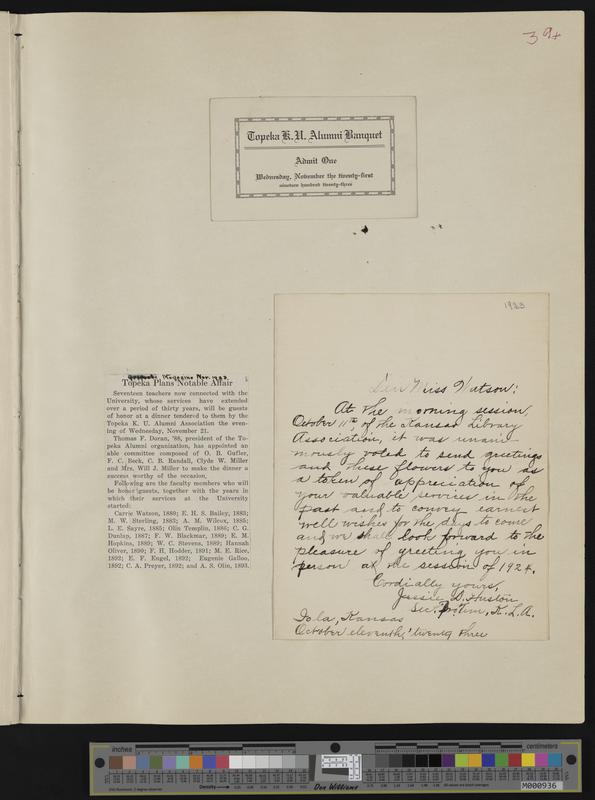 39+
Topeka K. U. Alumni Banquet
Admit One
Wednesday, November the twenty-first
nineteen hundred twenty-three
1923
Graduate Magazine Nov. 1923
Topeka Plans Notable Affair
Seventeen teachers now connected with the
University, whose services have extended
over a period of thirty years, will be guests
of honor at a dinner tendered to them by the
Topeka K. U. Alumni Association the even-
ing of Wednesday, November 21.
Thomas F. Doran, '88, president of the To-
peka Alumni organization, has appointed an
able committee composed of O. B. Gufler,
F. C. Beck, C. B. Randall, Clyde W. Miller
and Mrs. Will J. Miller to make the dinner a
success worthy of the occasion.
Following are the faculty members who will
be honor guests, together with the years in
which their services at the University
started:
Carrie Watson, 1889; E. H. S. Bailey, 1883;
M. W. Sterling, 1883; A. M. Wilcox, 1885;
L. E. Sayre, 1885; Olin Templin, 1886; C. G.
Dunlap, 1887; F. W. Blackmar, 1889; E. M.
Hopkins, 1889; W. C. Stevens, 1889; Hannah
Oliver, 1890; F. H. Hodder, 1891; M. E. Rice,
1892; E. F. Engel, 1892; Eugenie Galloo,
1892; C. A. Preyer, 1892; and A. S. Olin, 1893.
Dear Miss Watson:
At the morning session,
October 11th, of the Kansas Library
Association, it was unani-
mously voted to send greetings
and these flowers to you as
a token of appreciation of
your valuable services in the
past and to convey earnest
well wishes for the days to come
and we shall look forward to the
pleasure of greeting you in
person at the session of 1924.
Cordially yours,
Jessie D. Huston
Sec. Pro Tem, K. L. A.
Iola, Kansas
October eleventh, twenty three
inches
centimeters
Density
Don Williams
M000936